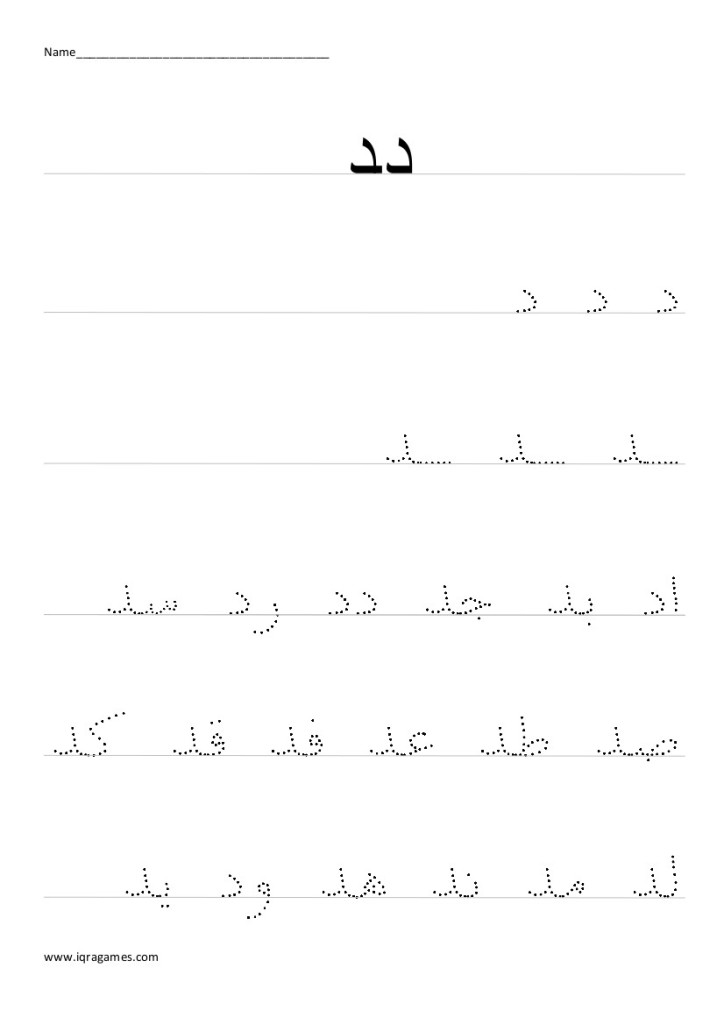 Name______________________________________
دد
د د د
ـد ـد ـد
اد بد جد دد رد سد
صد طد عد فد قد كد
لد مد ند هد ود يد
www.iqragames.com